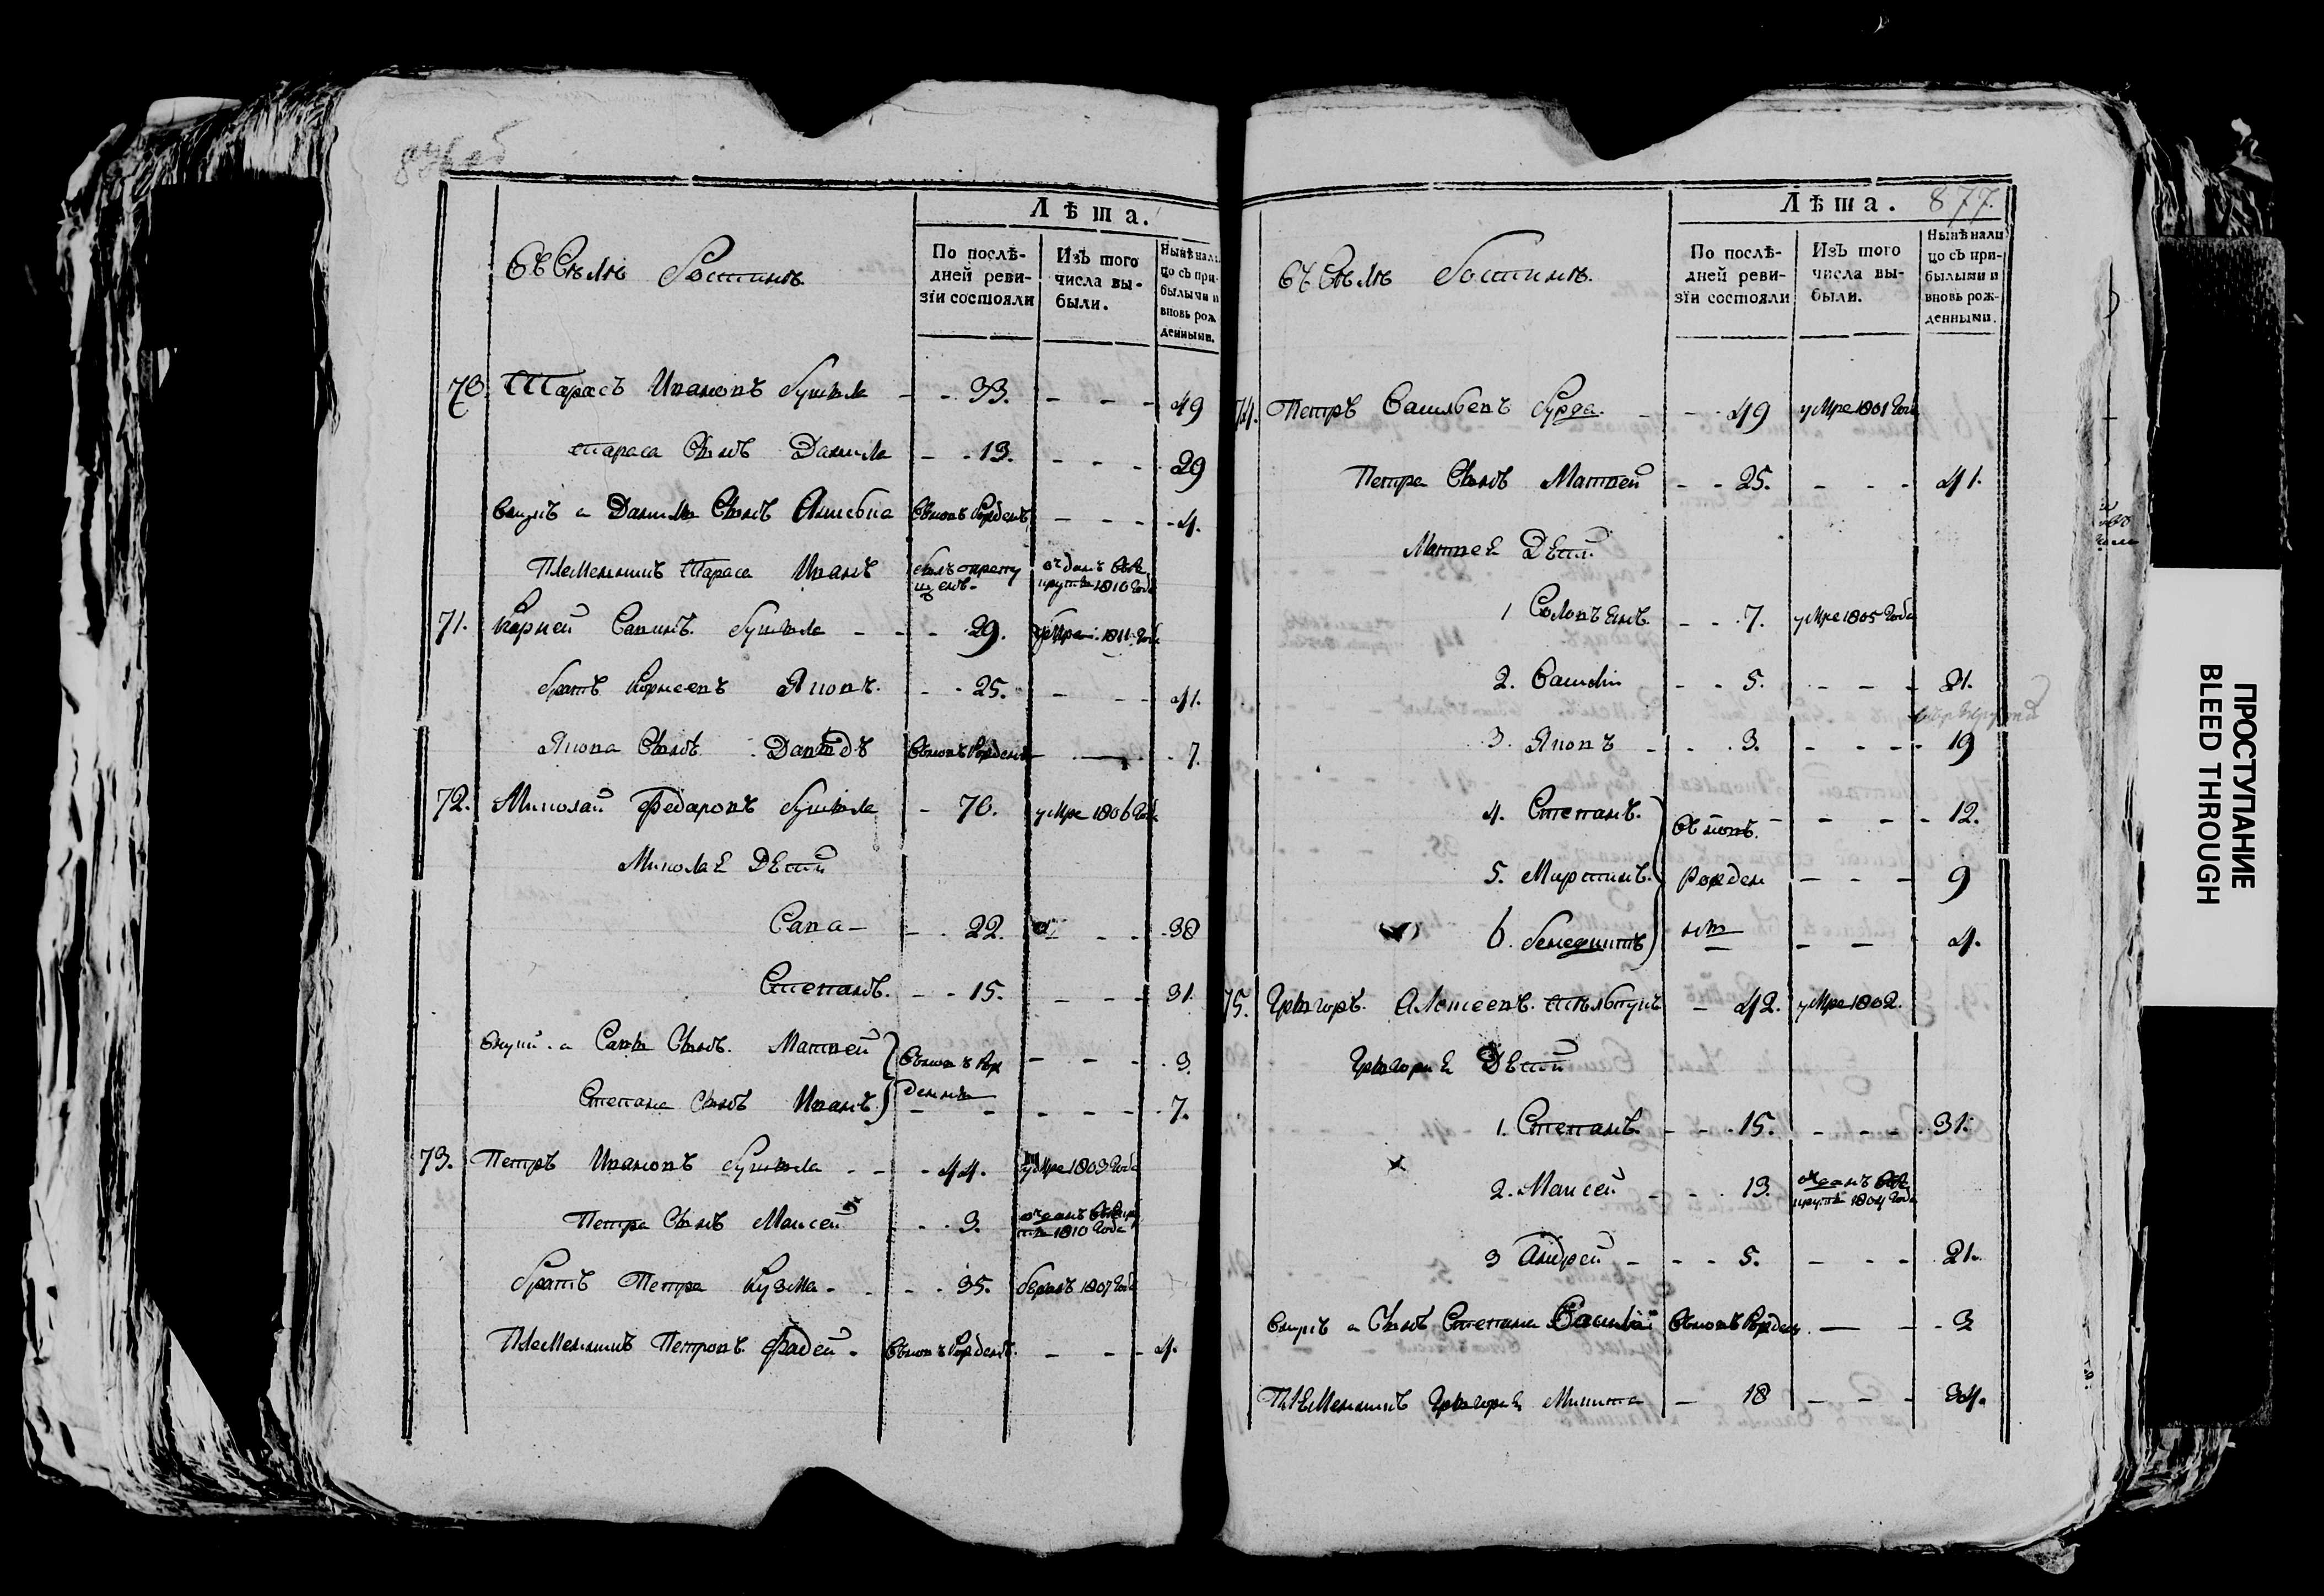 Лѣта.
Въ Селѣ
По послѣ-
дней реви-
зїи состояли
Изъ того
числа вы-
были.
Нынѣ нали
цо съ при-
былыми и
вновь рож
денными.
70. Тарасъ Ивановъ - - 33. - - - 49
Тараса Сынъ Данила - - 13. - - - 29
Внукъ а Данилы Сынъ Вновь Рожденъ - - - 4.
Племенникъ Тараса Иванъ отданъ въ Рекруты 1810 Года
71. Карней Савинъ - - - 29. умре 1811 Года
братъ Корнеевъ Яковъ - - 25. - - - 41.
Якова Сынъ Давидъ Вновь Рожденъ - 7.
72. Миколай Федаровъ - 70. умре 1806 Года
Миколаѣ Дѣти
Сава - - 22. - - - 38
Степанъ. - - 15. - - - 31.
Внуки а Савы Сынъ Матвей Вновь Рож - - - 3.
Степана Сынъ Иванъ денны - - - - 7.
73. Петръ Ивановъ - - - 44. умре 1803 Года
Петра Сынъ Маисей - - 3. отданъ въ Рекруты 1810 Года
братъ Петра Кузма - - - 35. бежалъ 1807 Года
Племенникъ Петровъ Фадей - Вновь Рожденъ. - - - 4.
Лѣта. 877.
Въ Селѣ
По послѣ-
дней реви-
зїи состояли
Изъ того
числа вы-
были.
Нынѣ нали
цо съ при-
былыми и
вновь рож-
денными.
74. Петръ Василевъ Бурда. - - - 49 умре 1801 Года
Петра Сынъ Матвей - - 25. - - - 41.
Матвеѣ Дѣти.
1 - - 7. умре 1805 Года
2. Василій - - 5. - - - 21.
3. Яковъ - - - 3. - - - - 19
4. Степанъ. Вновь - - - - 12.
5. Мартинъ. Рожден - - - 9
6. Бенедиктъ ны - - - 4.
75. Григоръ Алексеевъ - 42. умре 1802.
Григориѣ Дѣти
1. Степанъ. - - - 15. - - - - 31.
2. Маисей - - - 13. отданъ въ Рекруты 1804 Года
3 Андрей - - - 5. - - - 21.
Внукъ а Сынъ Степана Василій Вновь Рожденъ. - - - 3
Племенникъ Григориѣ Микита - 18 - - - 34.
ПРОСТУПАНИЕ
BLEED THROUGH